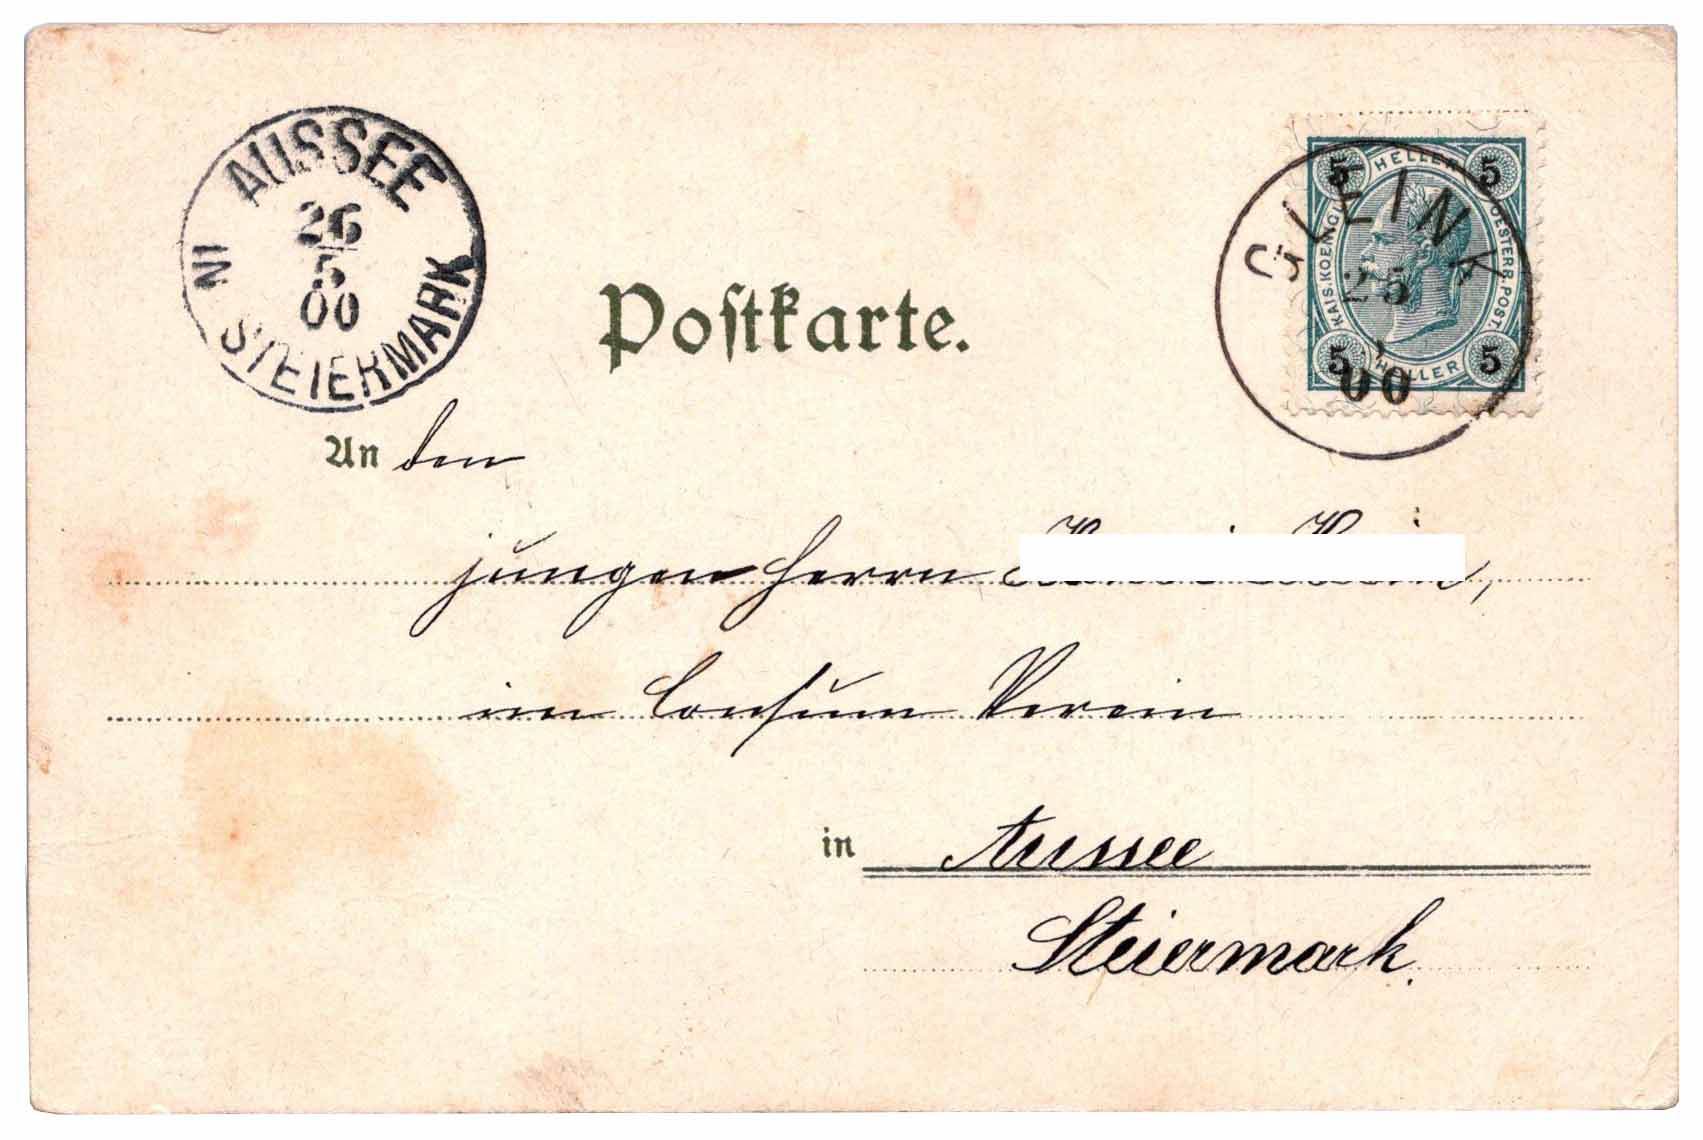 AUSSEE
26
5
00
IN STEIERMARK
Postkarte.
5 HELLER 5
KAIS. KOENIGL. OESTERR. POST.
5 HELLER 5
GLEINK
25
00
An den
jungen Herrn
im Consum Verein
in Aussee
Steiermark.